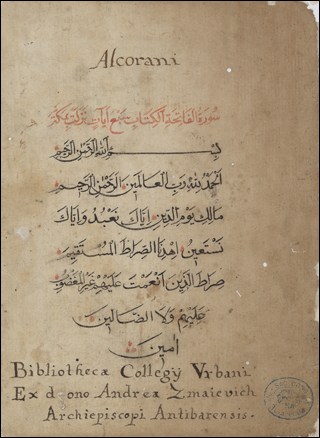 Alcorani
سورة الفاتحة الكتاب سبع آيات نزلت بمكة
بسم الله الرحمن الرحيم
الحمد لله رب العالمين الرحمن الرحيم
مالك يوم الدين اياك نعبد واياك
نستعين اهدنا الصراط المستقيم
صراط الذين انعمت عليهم غير المغضوب
عليهم ولا الضالين
امين
Bibliotheca Collegÿ Vrbani
Ex d ono Andrea Zmaievich
Archiepiscopi Antibarensis.